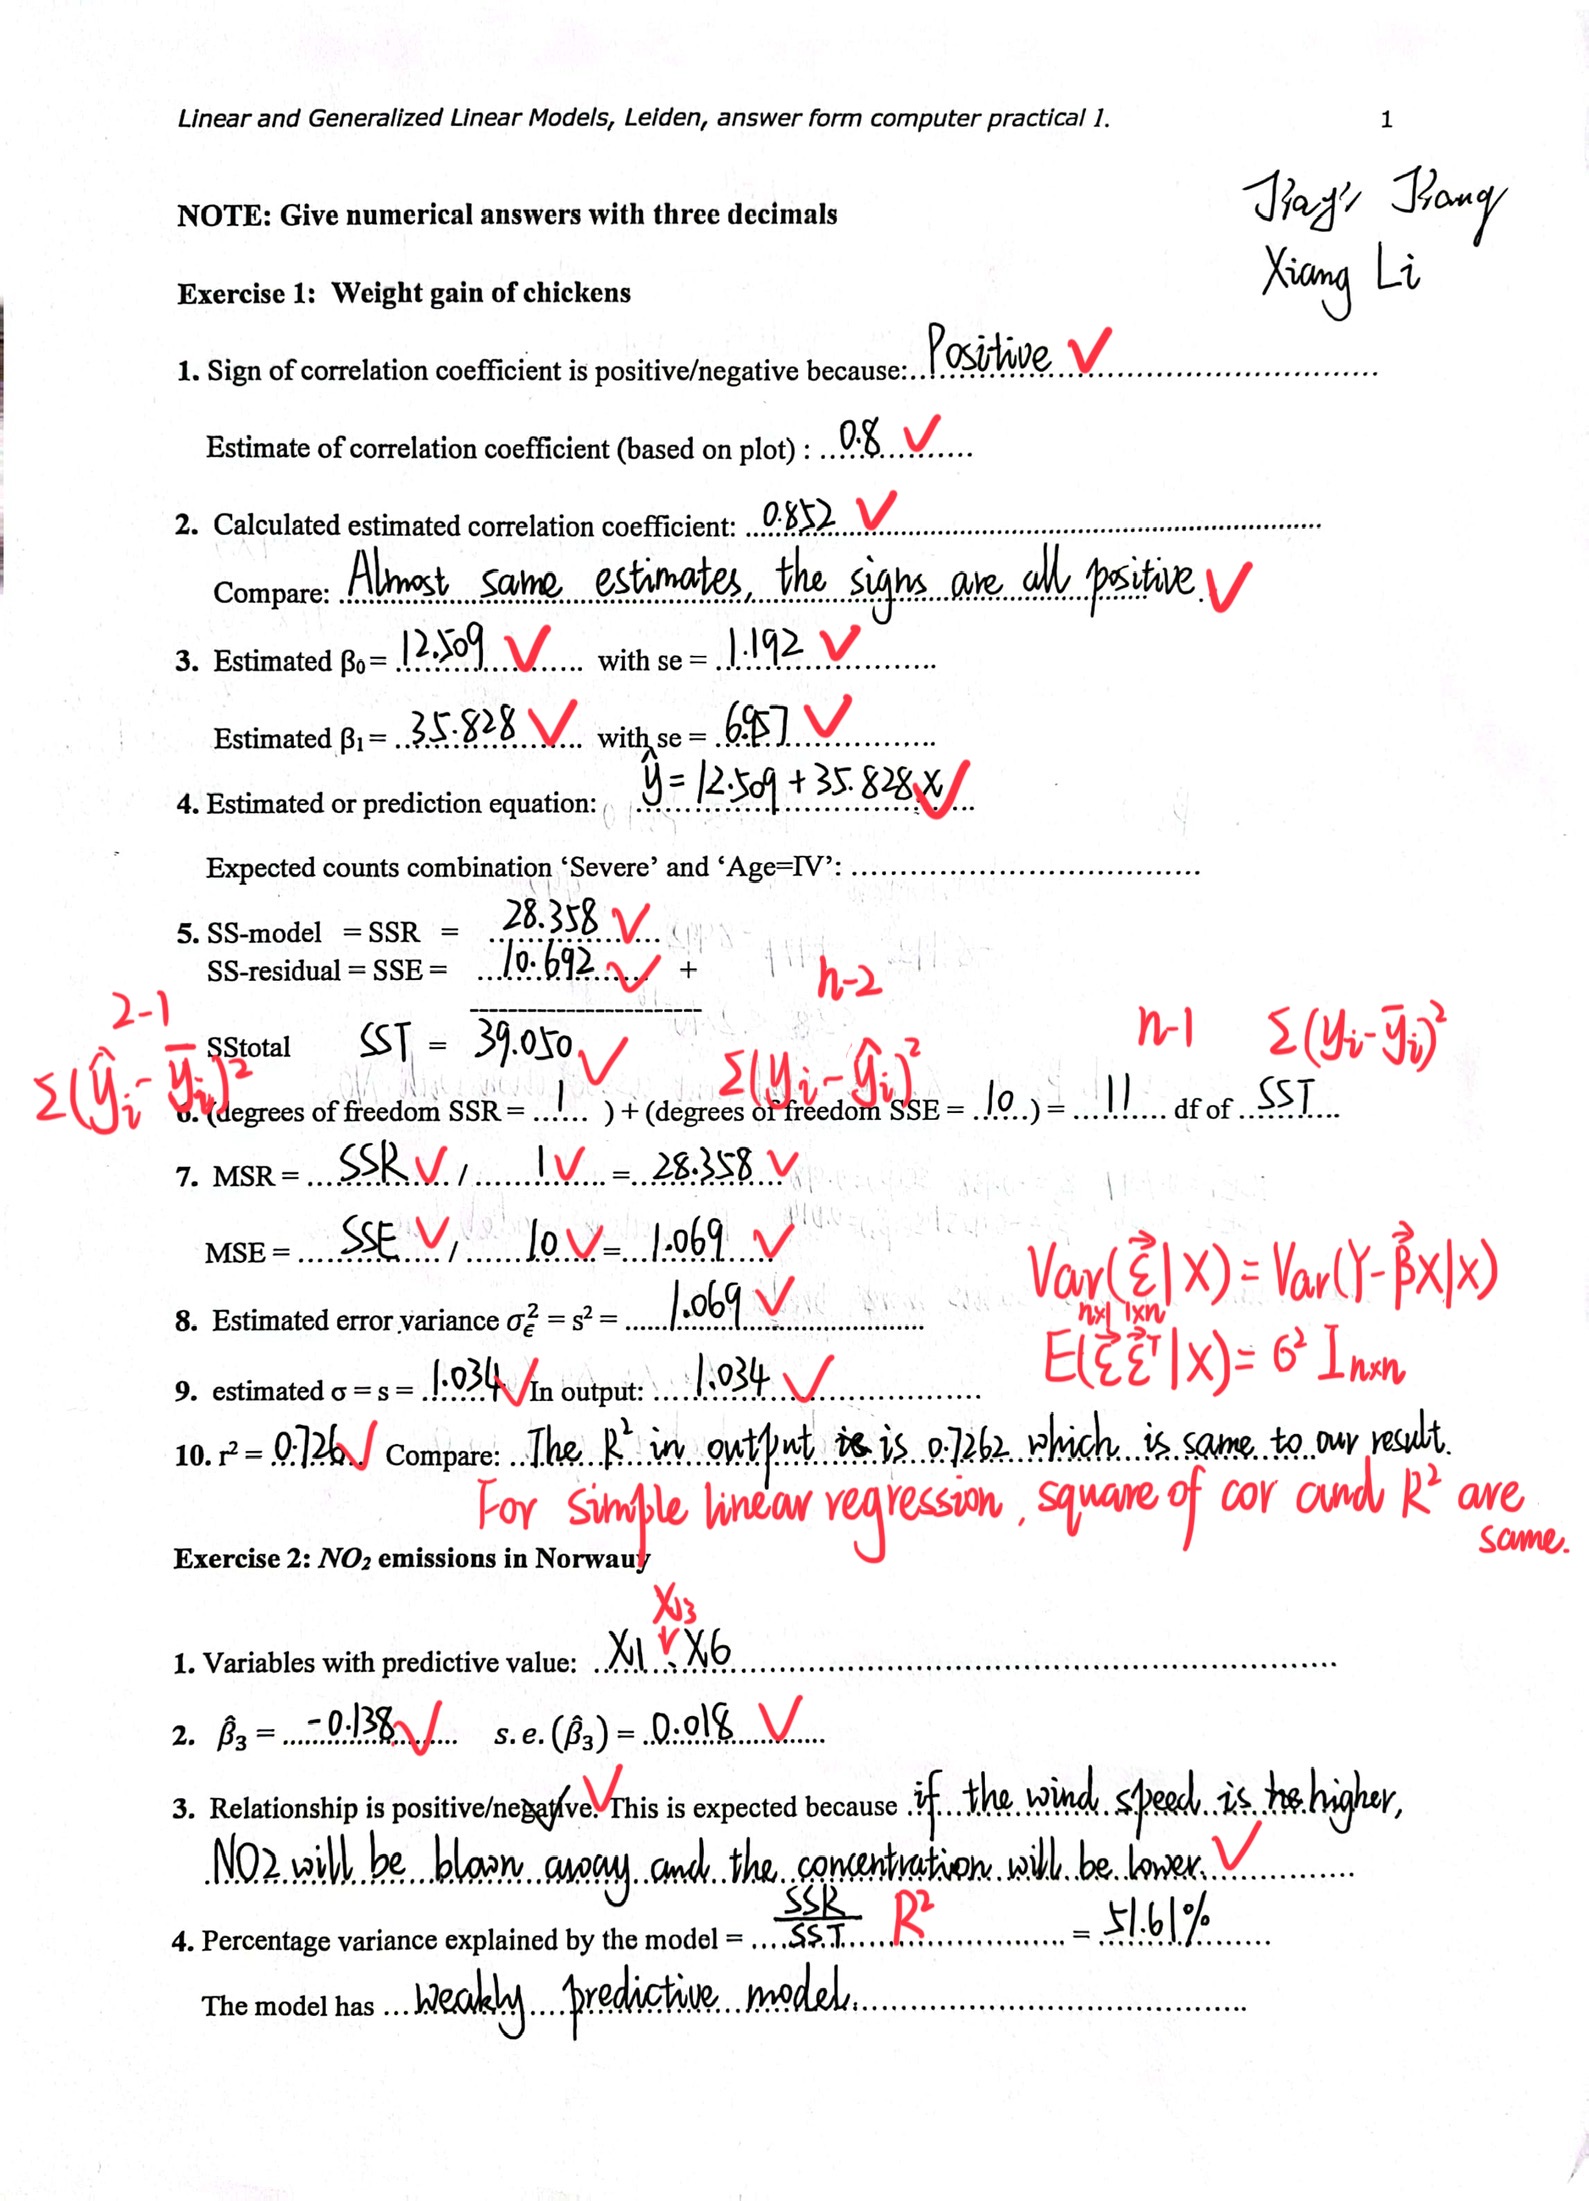 Linear and Generalized Linear Models, Leiden, answer form computer practical 1. 1
NOTE: Give numerical answers with three decimals
Xiang Li
Exercise 1: Weight gain of chickens
1. Sign of correlation coefficient is positive/negative because:.. Positive ✓
Estimate of correlation coefficient (based on plot) : ..0.8.. ✓
2. Calculated estimated correlation coefficient: ..0.852.. ✓
Compare: Almost same estimates, the signs are all positive. ✓
3. Estimated β0 = 12.509 ✓ with se = 1.192 ✓
Estimated β1 = 35.828 ✓ with se = 6.957 ✓
4. Estimated or prediction equation: ŷ = 12.509 + 35.828x ✓
Expected counts combination ‘Severe’ and ‘Age=IV’: ....................................
5. SS-model = SSR = 28.358 ✓
SS-residual = SSE = 10.692 ✓ +
2-1 n-2
SStotal SST = 39.050 ✓ n-1 Σ(yi-ȳi)²
Σ(ŷi-ȳi)² Σ(yi-ŷi)²
6. (degrees of freedom SSR = ...1... ) + (degrees of freedom SSE = 10..) = ....11.... df of ..SST....
7. MSR = ...SSR ✓ / ....1 ✓ = 28.358 ✓
MSE = ....SSE ✓ / ....10 ✓ = 1.069 ✓
Var(ε⃗|X) = Var(Y-β⃗X|X)
nx1 1xn
8. Estimated error variance σ²ϵ = s² = ....1.069 ✓
E(ε⃗ε⃗ᵀ|X) = σ² Inxn
9. estimated σ = s = 1.034 ✓ In output: ....1.034 ✓
10. r² = 0.726 ✓ Compare: The R² in output is is 0.7262 which is same to our result.
For simple linear regression, square of cor and R² are
same.
Exercise 2: NO2 emissions in Norwauy
X3
1. Variables with predictive value: ..X1 ✓ X6
2. β̂3 = -0.138 ✓ s.e.(β̂3) = 0.018 ✓
3. Relationship is positive/negative. ✓ This is expected because if the wind speed is higher,
NO2 will be blown away and the concentration will be lower. ✓
4. Percentage variance explained by the model = SSR/SST R² = 51.61%
The model has ...weakly predictive model.